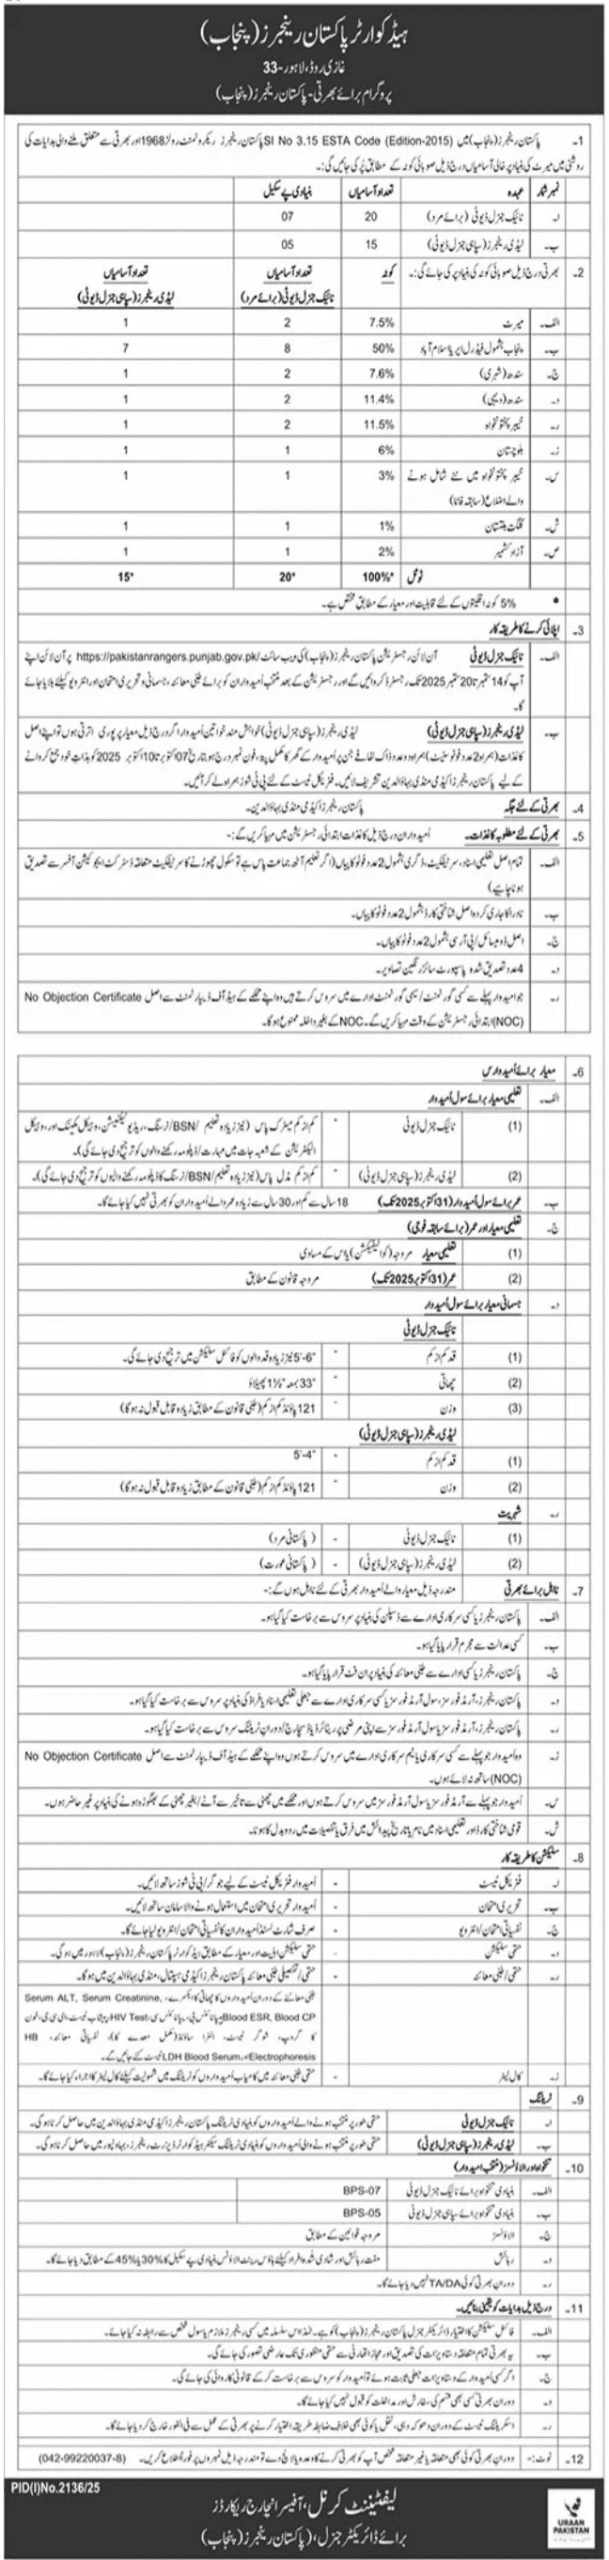 ہیڈ کوارٹر پاکستان رینجرز (پنجاب)
غازی روڈ، لاہور-33
پروگرام برائے بھرتی - پاکستان رینجرز (پنجاب)
1۔ پاکستان رینجرز (پنجاب) میں SI No 3.15 ESTA Code (Edition-2015) پاکستان رینجرز ریکروٹمنٹ رولز 1968 اور بھرتی سے متعلق ملنے والی ہدایات کی
روشنی میں میرٹ کی بنیاد پر خالی آسامیاں درج ذیل صوبائی کوٹہ کے مطابق پُر کی جائیں گی:
نمبر شمار عہدہ تعداد آسامیاں بنیادی پے سکیل
ا۔ نائیک جنرل ڈیوٹی (برائے مرد) 20 07
ب۔ لیڈی رینجرز (سپاہی جنرل ڈیوٹی) 15 05
2۔ بھرتی درج ذیل صوبائی کوٹہ کی بنیاد پر کی جائے گی:۔ کوٹہ تعداد آسامیاں تعداد آسامیاں
نائیک جنرل ڈیوٹی (برائے مرد) لیڈی رینجرز (سپاہی جنرل ڈیوٹی)
الف۔ میرٹ 7.5% 2 1
ب۔ پنجاب بشمول فیڈرل ایریا اسلام آباد 50% 8 7
ج۔ سندھ (شہری) 7.6% 2 1
د۔ سندھ (دیہی) 11.4% 2 1
ر۔ خیبر پختونخواہ 11.5% 2 1
ز۔ بلوچستان 6% 1 1
س۔ خیبر پختونخواہ میں نئے شامل ہونے 3% 1 1
والے اضلاع (سابقہ فاٹا)
ش۔ گلگت بلتستان 1% 1 1
ص۔ آزاد کشمیر 2% 1 1
ٹوٹل 100%* 20* 15*
• 5% کوٹہ اقلیتوں کے لئے قابلیت اور معیار کے مطابق مختص ہے۔
3۔ اپلائی کرنے کا طریقہ کار
الف۔ نائیک جنرل ڈیوٹی آن لائن رجسٹریشن پاکستان رینجرز (پنجاب) کی ویب سائٹ https://pakistanrangers.punjab.gov.pk/ پر آن لائن اپنے
آپ کو 14 ستمبر تا 20 ستمبر 2025 تک رجسٹرڈ کروائیں گے اور رجسٹریشن کے بعد منتخب اُمیدواران کو برائے طبی معائنہ، جسمانی و تحریری امتحان اور انٹرویو کیلئے بلایا جائے
گا۔
ب۔ لیڈی رینجرز (سپاہی جنرل ڈیوٹی) لیڈی رینجرز (سپاہی جنرل ڈیوٹی) خواہش مند خواتین اُمیدوار اگر درج ذیل معیار پر پوری اترتی ہوں تو اپنے اصل
کاغذات (ہمراہ 2 عدد فوٹو سیٹ) ہمراہ دو عدد ڈاک لفافے جن پر اُمیدوار کے گھر کا مکمل پتہ، فون نمبر درج ہو بتاریخ 07 اکتوبر تا 10 اکتوبر 2025 کو بذاتِ خود جمع کروانے
کے لیے پاکستان رینجرز اکیڈمی منڈی بہاؤالدین تشریف لائیں۔ فزیکل ٹیسٹ کے لئے پی ٹی شوز ہمراہ لے کر آئیں۔
4۔ بھرتی کے لئے جگہ پاکستان رینجرز اکیڈمی منڈی بہاؤالدین۔
5۔ بھرتی کے لئے مطلوبہ کاغذات۔ اُمیدواران درج ذیل کاغذات ابتدائی رجسٹریشن میں مہیا کریں گے:۔
الف۔ تمام اصل تعلیمی اسناد، سرٹیفکیٹ، ڈگری بشمول 2 عدد فوٹو کاپیاں (اگر تعلیم آٹھ جماعت پاس ہے تو سکول چھوڑنے کا سرٹیفکیٹ متعلقہ ڈسٹرکٹ ایجوکیشن آفیسر سے تصدیق
ہونا چاہیے)
ب۔ نادرا کا جاری کردہ اصل شناختی کارڈ بشمول 2 عدد فوٹو کاپیاں۔
ج۔ اصل ڈومیسائل / پی آر سی بشمول 2 عدد فوٹو کاپیاں۔
د۔ 4 عدد تصدیق شدہ پاسپورٹ سائز رنگین تصاویر۔
ر۔ جو امیدوار پہلے سے کسی گورنمنٹ / سیمی گورنمنٹ ادارے میں سروس کرتے ہیں وہ اپنے محکمے کے ہیڈ آف ڈیپارٹمنٹ سے اصل No Objection Certificate
(NOC) ابتدائی رجسٹریشن کے وقت مہیا کریں گے۔ NOC کے بغیر داخلہ ممنوع ہوگا۔
6۔ معیار برائے اُمیدوارس
الف۔ تعلیمی معیار برائے سول اُمیدوار
(1) نائیک جنرل ڈیوٹی - کم از کم میٹرک پاس (نیز زیادہ تعلیم /BSN/نرسنگ، ریڈیو ٹیکنیشن، وہیکل مکینک اور، وہیکل
الیکٹریشن کے شعبہ جات میں مہارت / ڈپلومہ رکھنے والوں کو ترجیح دی جائے گی)۔
(2) لیڈی رینجرز (سپاہی جنرل ڈیوٹی) - کم از کم مڈل پاس (نیز زیادہ تعلیم /BSN/ نرسنگ کا ڈپلومہ رکھنے والیوں کو ترجیح دی جائے گی)۔
ب۔ عمر برائے سول اُمیدوار (31 اکتوبر 2025 تک) 18 سال سے کم اور 30 سال سے زیادہ عمر والے اُمیدواران کو بھرتی نہیں کیا جائے گا۔
ج۔ تعلیمی معیار اور عمر (برائے سابقہ فوجی)
(1) تعلیمی معیار مروجہ (کوالیفکیشن) یا اس کے مساوی
(2) عمر (31 اکتوبر 2025 تک) مروجہ قانون کے مطابق
د۔ جسمانی معیار برائے سول اُمیدوار
نائیک جنرل ڈیوٹی
(1) قد کم از کم - 5'-6" نیز زیادہ قد والوں کو فائنل سلیکشن میں ترجیح دی جائے گی۔
(2) چھاتی - 33" بمعہ 1½" پھیلاؤ
(3) وزن - 121 پاؤنڈ کم از کم (طبی قانون کے مطابق زیادہ قابل قبول نہ ہوگا)
لیڈی رینجرز (سپاہی جنرل ڈیوٹی)
(1) قد کم از کم - 5'-4"
(2) وزن - 121 پاؤنڈ کم از کم (طبی قانون کے مطابق زیادہ قابل قبول نہ ہوگا)
ر۔ شہریت
(1) نائیک جنرل ڈیوٹی - (پاکستانی مرد)
(2) لیڈی رینجرز (سپاہی جنرل ڈیوٹی) - (پاکستانی عورت)
7۔ نااہل برائے بھرتی مندرجہ ذیل معیار والے اُمیدوار بھرتی کے لئے نااہل ہوں گے:۔
الف۔ پاکستان رینجرز یا کسی سرکاری ادارے سے ڈسپلن کی بنیاد پر سروس سے برخاست کیا گیا ہو۔
ب۔ کسی عدالت سے مجرم قرار پایا گیا ہو۔
ج۔ پاکستان رینجرز یا کسی ادارے سے طبی معائنہ کی بنیاد پر ان فٹ قرار پایا گیا ہو۔
د۔ پاکستان رینجرز، آرمڈ فورسز، سول آرمڈ فورسز یا کسی سرکاری ادارے سے جعلی تعلیمی اسناد یا فراڈ کی بنیاد پر سروس سے برخاست کیا گیا ہو۔
ر۔ پاکستان رینجرز، آرمڈ فورسز یا سول آرمڈ فورسز سے اپنی مرضی پر ریٹائرڈ یا ڈسچارج / دوران ٹریننگ سروس سے برخاست کیا گیا ہو۔
ز۔ وہ اُمیدوار جو پہلے سے کسی سرکاری یا نیم سرکاری ادارے میں سروس کرتے ہوں وہ اپنے محکمے کے ہیڈ آف ڈیپارٹمنٹ سے اصل No Objection Certificate
(NOC) ساتھ نہ لائے ہوں۔
س۔ اُمیدوار جو پہلے سے آرمڈ فورسز یا سول آرمڈ فورسز میں سروس کرتے ہوں اور محکمے میں چھٹی سے تاخیر سے آنے / بغیر چھٹی کے بھگوڑہ ہونے کی بنیاد پر غیر حاضر ہوں۔
ش۔ قومی شناختی کارڈ اور تعلیمی اسناد میں نام یا تاریخ پیدائش میں فرق یا تفصیلات میں ردوبدل کا ہونا۔
8۔ سلیکشن کا طریقہ کار
ا۔ فزیکل ٹیسٹ - اُمیدوار فزیکل ٹیسٹ کے لیے جوگر / پی ٹی شوز ساتھ لائیں۔
ب۔ تحریری امتحان - اُمیدوار تحریری امتحان میں استعمال ہونے والا سامان ساتھ لائیں۔
ج۔ نفسیاتی امتحان / انٹرویو - صرف شارٹ لسٹڈ اُمیدواران کا نفسیاتی امتحان / انٹرویو لیا جائے گا۔
د۔ حتمی سلیکشن - حتمی سلیکشن اہلیت اور معیار کے مطابق ہیڈ کوارٹر پاکستان رینجرز (پنجاب) لاہور میں ہوگی۔
ر۔ حتمی / طبی معائنہ - حتمی / تفصیلی طبی معائنہ پاکستان رینجرز اکیڈمی ہسپتال، منڈی بہاؤالدین میں ہوگا۔
طبی معائنے کے دوران اُمیدواروں کا چھاتی کا ایکسرے، Serum ALT, Serum Creatinine,
Blood ESR, Blood CP، ہیپاٹائٹس بی، ہیپاٹائٹس سی، HIV Test، پیشاب ٹیسٹ، ای سی جی، خون
کا گروپ، شوگر ٹیسٹ، الٹرا ساؤنڈ (مکمل معدے کا)، نفسیاتی معائنہ، HB
Electrophoresis اور LDH Blood Serum ٹیسٹ کئے جائیں گے۔
ز۔ کال لیٹر - حتمی طبی معائنہ میں کامیاب اُمیدواروں کو ٹریننگ میں شمولیت کیلئے کال لیٹر کا اجراء کیا جائے گا۔
9۔ ٹریننگ
ا۔ نائیک جنرل ڈیوٹی حتمی طور پر منتخب ہونے والے اُمیدواروں کو بنیادی ٹریننگ پاکستان رینجرز اکیڈمی منڈی بہاؤالدین میں حاصل کرنا ہوگی۔
ب۔ لیڈی رینجرز (سپاہی جنرل ڈیوٹی) حتمی طور پر منتخب ہونے والی اُمیدواروں کو بنیادی ٹریننگ سیکٹر ہیڈ کوارٹر ڈیزرٹ رینجرز، بہاولپور میں حاصل کرنا ہوگی۔
10۔ تنخواہ اور الاؤنسز (منتخب امیدوار)
الف۔ بنیادی تنخواہ برائے نائیک جنرل ڈیوٹی BPS-07
ب۔ بنیادی تنخواہ برائے سپاہی جنرل ڈیوٹی BPS-05
ج۔ الاؤنسز مروجہ قوانین کے مطابق
د۔ رہائش مفت رہائش اور شادی شدہ افراد کیلئے ہاؤس رینٹ الاؤنس بنیادی پے سکیل کا 30% یا 45% کے مطابق دیا جائے گا۔
ر۔ دوران بھرتی کوئی TA/DA نہیں دیا جائے گا۔
11۔ درج ذیل ہدایات کو یقینی بنائیں۔
الف۔ فائنل سلیکشن کا اختیار ڈائریکٹر جنرل پاکستان رینجرز (پنجاب) کو ہے۔ لہٰذا اس سلسلہ میں کسی رینجرز ملازم یا سول شخص سے رابطہ نہ کیا جائے۔
ب۔ یہ بھرتی تمام متعلقہ دستاویزات کی تصدیق اور مجاز اتھارٹی سے حتمی منظوری تک عارضی تصور کی جائے گی۔
ج۔ اگر کسی اُمیدوار کے دستاویزات جعلی ثابت ہوئے تو اُمیدوار کو سروس سے برخاست کر کے قانونی کاروائی کی جائے گی۔
د۔ دوران بھرتی کسی بھی قسم کی سفارش اور مداخلت کو قبول نہیں کیا جائے گا۔
ر۔ اسکریننگ ٹیسٹ کے دوران دھوکہ دہی، نقل یا کوئی بھی خلاف ضابطہ طریقہ اختیار کرنے پر بھرتی کے عمل سے فی الفور خارج کر دیا جائے گا۔
12۔ نوٹ:۔ دوران بھرتی کوئی بھی متعلقہ یا غیر متعلقہ شخص آپ کو بھرتی کرنے کا وعدہ یا لالچ دے تو مندرجہ ذیل نمبروں پر فوراً اطلاع کریں۔ (042-99220037-8)
PID(I)No.2136/25
لیفٹیننٹ کرنل، آفیسر انچارج ریکارڈز
برائے ڈائریکٹر جنرل، (پاکستان رینجرز (پنجاب)
URAAN
PAKISTAN